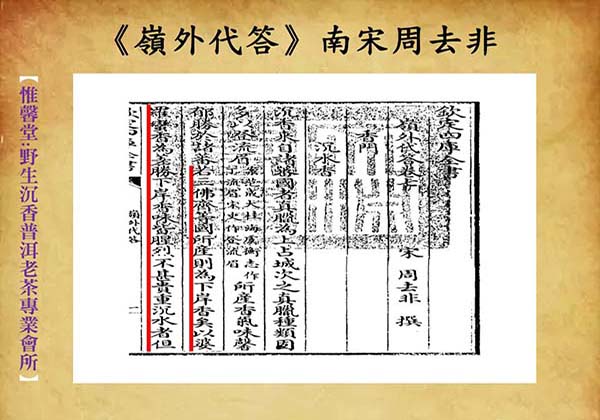 《嶺外代答》南宋周去非
【惟馨堂:野生沉香普洱老茶專業會所】
欽定四庫全書
嶺外代答卷七
宋 周去非 撰
香門
沉水香
沉香來自諸蕃國者真臘為上占城次之真臘種類固
多以登流眉
案范成大桂海虞衡志作
流眉宋史作登流眉
所產香氣味馨
郁勝於諸蕃若三佛齊等國所產則為下岸香矣以婆
羅蠻香為差勝下岸香味皆腥烈不甚貴重沉水者但
嶺外代答